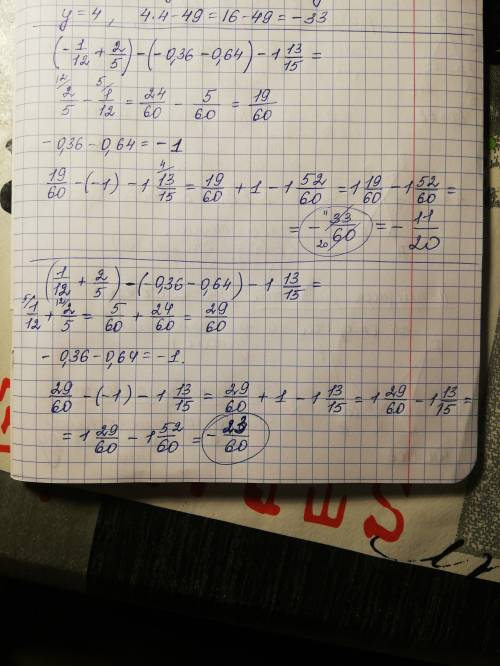 y = 4, 4.4-49 = 16-49 = -33
(-1/12 + 2/5) - (-0,36-0,64) - 1 13/15 =
12/ 2/5 - 5/ 1/12 = 24/60 - 5/60 = 19/60
-0,36-0,64 = -1
19/60 - (-1) - 1 4/ 13/15 = 19/60 + 1 - 1 52/60 = 1 19/60 - 1 52/60 =
= - 11 33/60 20 = - 11/20
(1/12 + 2/5) - (-0,36-0,64) - 1 13/15 =
5/ 1/12 + 12/ 2/5 = 5/60 + 24/60 = 29/60
-0,36-0,64 = -1.
29/60 - (-1) - 1 13/15 = 29/60 + 1 - 1 13/15 = 1 29/60 - 1 13/15 =
= 1 29/60 - 1 52/60 = - 23/60